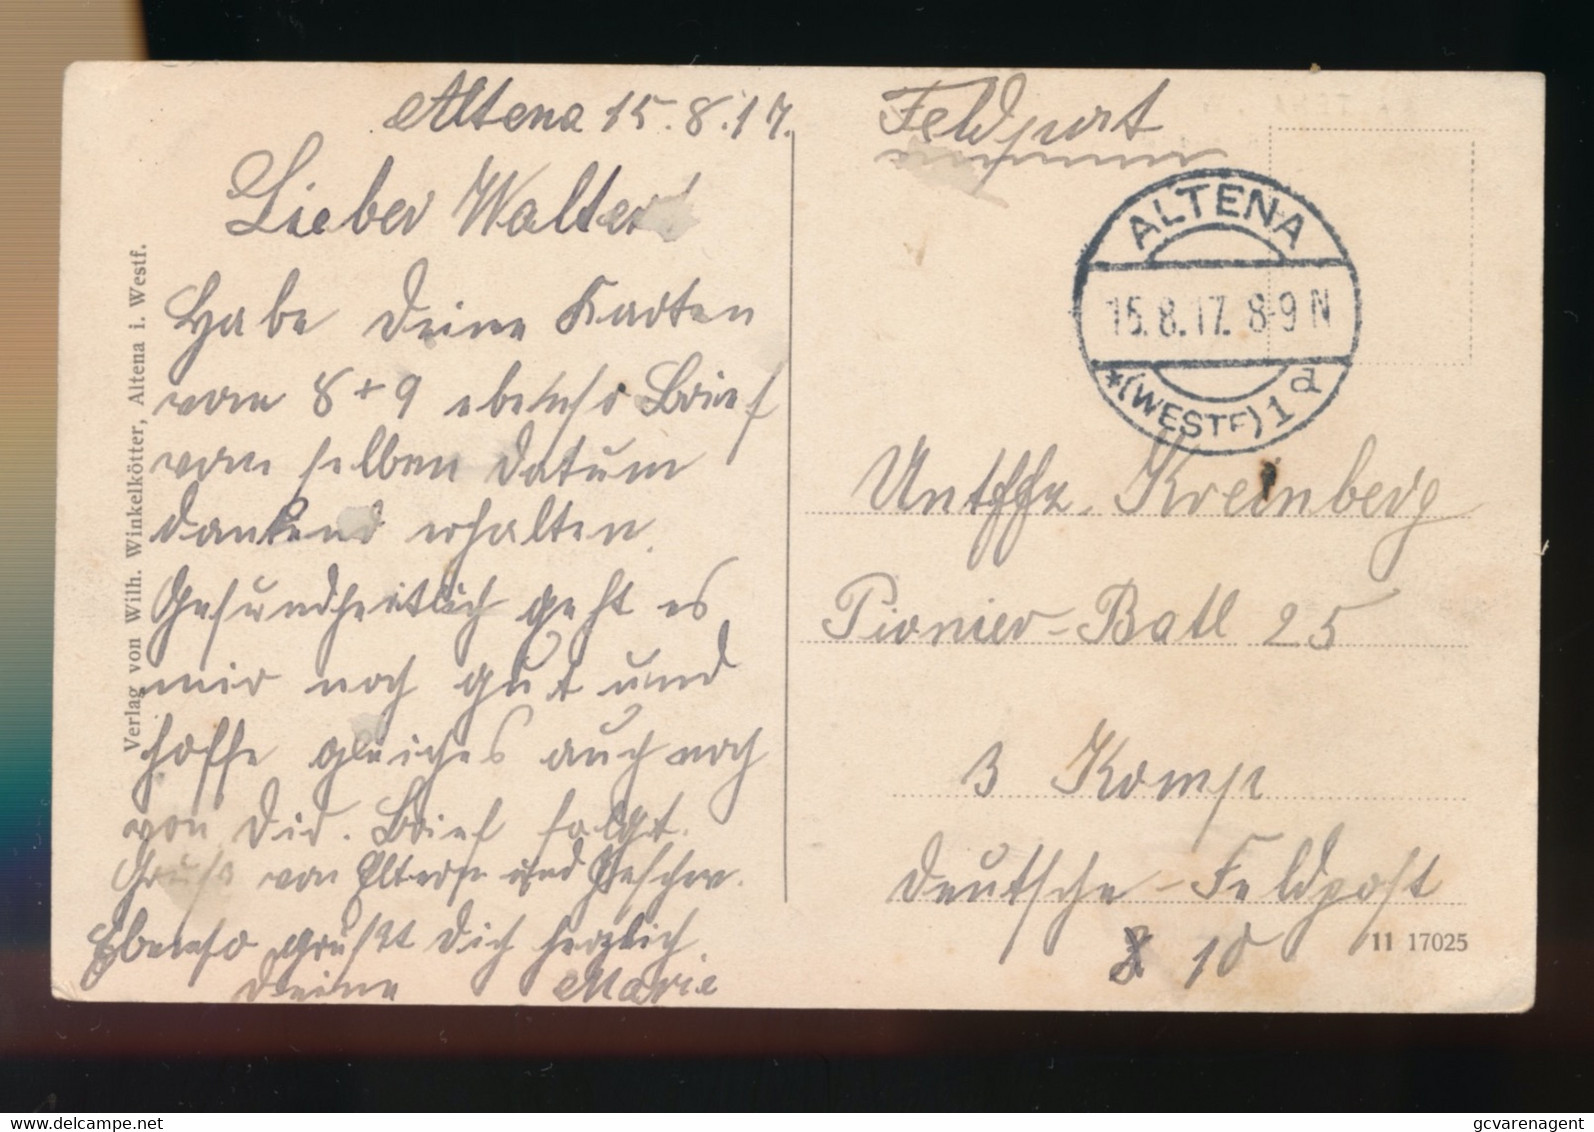 Altena 15.8.17.
Lieber Walter
Habe Deine Karten
vom 8 + 9 ebenso Brief
vom selben Datum
dankend erhalten.
Gesundheitlich geht es
mir noch gut und
hoffe gleiches auch noch
von Dir. Brief folgt.
Gruß von Eltern und Geschw.
Ebenso grüßt Dich herzlich
Deine Marie
Verlag von Wilh. Winkelkötter, Altena i. Westf.
Feldpost
ALTENA
15.8.17. 8-9 N
*(WESTF) 1 d
Untffz. Kreinberg
Pionier-Batl 25
3 Komp
Deutsche-Feldpost
10
11 17025
www.delcampe.net
gcvarenagent